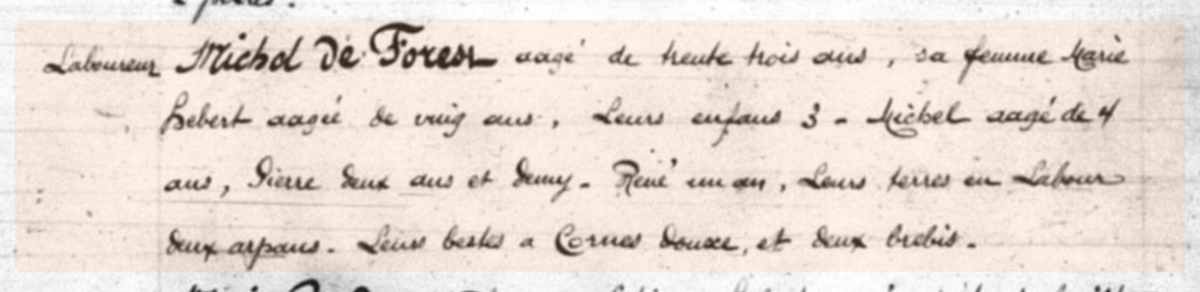 Laboureur Michel De Forest aagé de trente trois ans, sa femme Marie
hebert aagée de ving ans, Leurs enfans 3 - Michel aagé de 4
ans, Pierre deux ans et demy - René un an, Leurs terres en Labour
deux arpans - Leurs bestes a Cornes douxe, et deux brebis -